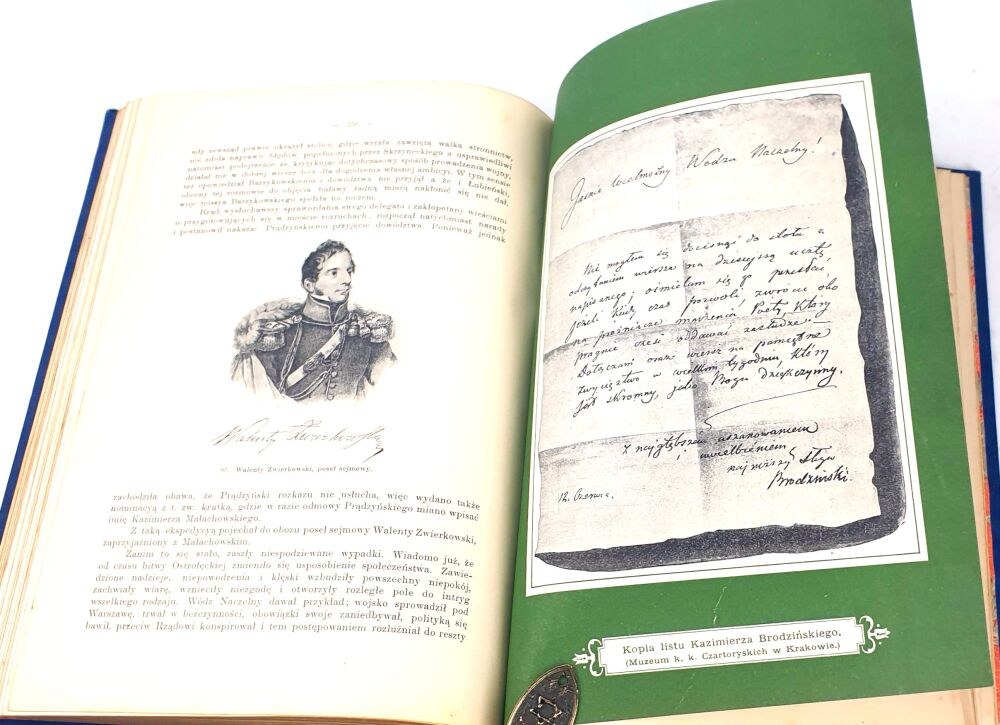 ędy zewsząd prawie okrążył stolicę, gdzie wrzała zawzięta walka stronnictw,
nie zdoła naprawić błędów, popełnionych przez Skrzyneckiego a usprawiedliwi
natomiast podejrzenie, że, krytykując dotychczasowy sposób prowadzenia wojny,
działał nie w dobrej wierze lecz dla dogodzenia własnej ambicyi. W tym sensie
też opowiedział Barzykowskiemu i dowództwa nie przyjął a że i Łubieński,
obecny tej rozmowie do objęcia buławy żadną miarą nakłonić się nie dał,
więc missya Barzykowskiego spełzła na niczem.
Rząd, wysłuchawszy sprawozdania swego delegata i zakłopotany wieściami
o przygotowujących się w mieście rozruchach, rozpoczął natychmiast narady
i postanowił nakazać Prądzyńskiemu przyjęcie dowództwa. Ponieważ jednak
Walenty Zwierkowski
87. Walenty Zwierkowski, poseł sejmowy.
zachodziła obawa, że Prądzyński rozkazu nie usłucha, więc wydano także
nominacyą z t. zw. kratką, gdzie w razie odmowy Prądzyńskiego miano wpisać
imię Kazimierza Małachowskiego.
Z taką ekspedycyą pojechał do obozu poseł sejmowy Walenty Zwierkowski,
zaprzyjaźniony z Małachowskim.
Zanim to się stało, zaszły niespodziewane wypadki. Wiadomo już, że
od czasu bitwy Ostrołęckiej zmieniło się usposobienie społeczeństwa. Zawie-
dzione nadzieje, niepowodzenia i klęski wzbudziły powszechny niepokój,
zachwiały wiarę, wznieciły niezgodę i otworzyły rozległe pole do intryg
wszelkiego rodzaju. Wódz Naczelny dawał przykład; wojsko sprowadził pod
Warszawę, trwał w bezczynności, obowiązki swoje zaniedbywał, polityką się
bawił, przeciw Rządowi konspirował i tem postępowaniem rozluźniał do reszty
Jaśnie Wielmożny Wodzu Naczelny!
Nie mogłem się docisnąć do stołu z
odczytaniem wiersza na dzisiejszą ucztę
napisanego; ośmielam się go przesłać,
jeżeli kiedy czas pozwoli zwrócić oko
na próżniejsze marzenia Poety, który
pragnie cześć oddawać zasłudze.
Dołączam oraz wiersz na pamiętne
zwycięztwo w wielkim tygodniu, który
jest skromny, jako Bogu dziękczynny.
Z najgłębszém uszanowaniem
i uwielbieniem
najniższy sługa
Brodziński.
12. Czerwca.
Kopia listu Kazimierza Brodzińskiego.
(Muzeum k. k. Czartoryskich w Krakowie.)